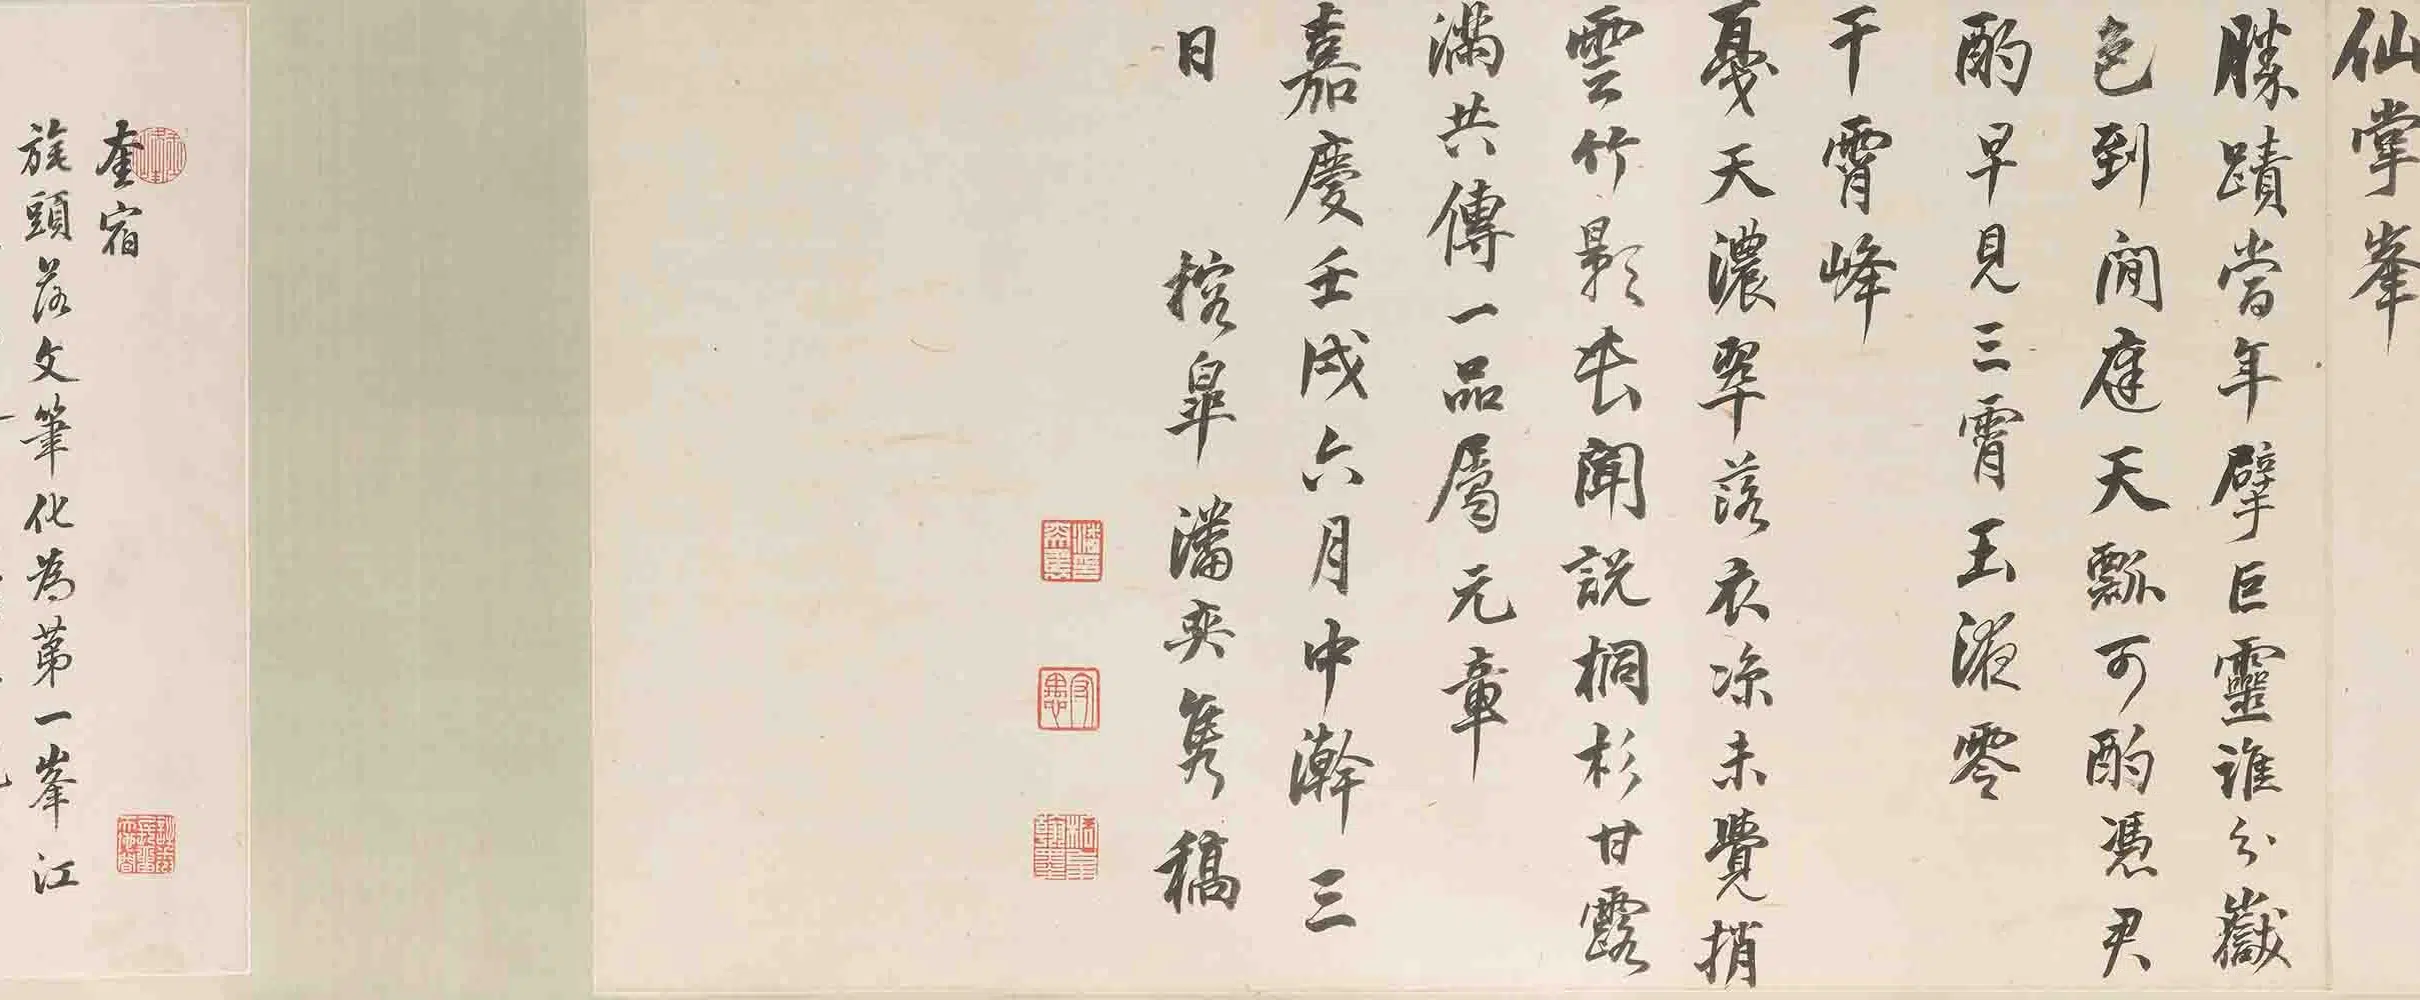 仙掌峯
勝蹟當年擘巨靈誰分嶽
色到閒庭天瓢可酌憑君
酌早見三霄玉液零
干霄峰
戛天濃翠落衣凉未覺捎
雲竹影長聞説桐杉甘露
滿共傳一品屬元章
嘉慶壬戌六月中澣三
日 榕皋潘奕雋稿
奎宿
旄頭落文筆化為第一峯江